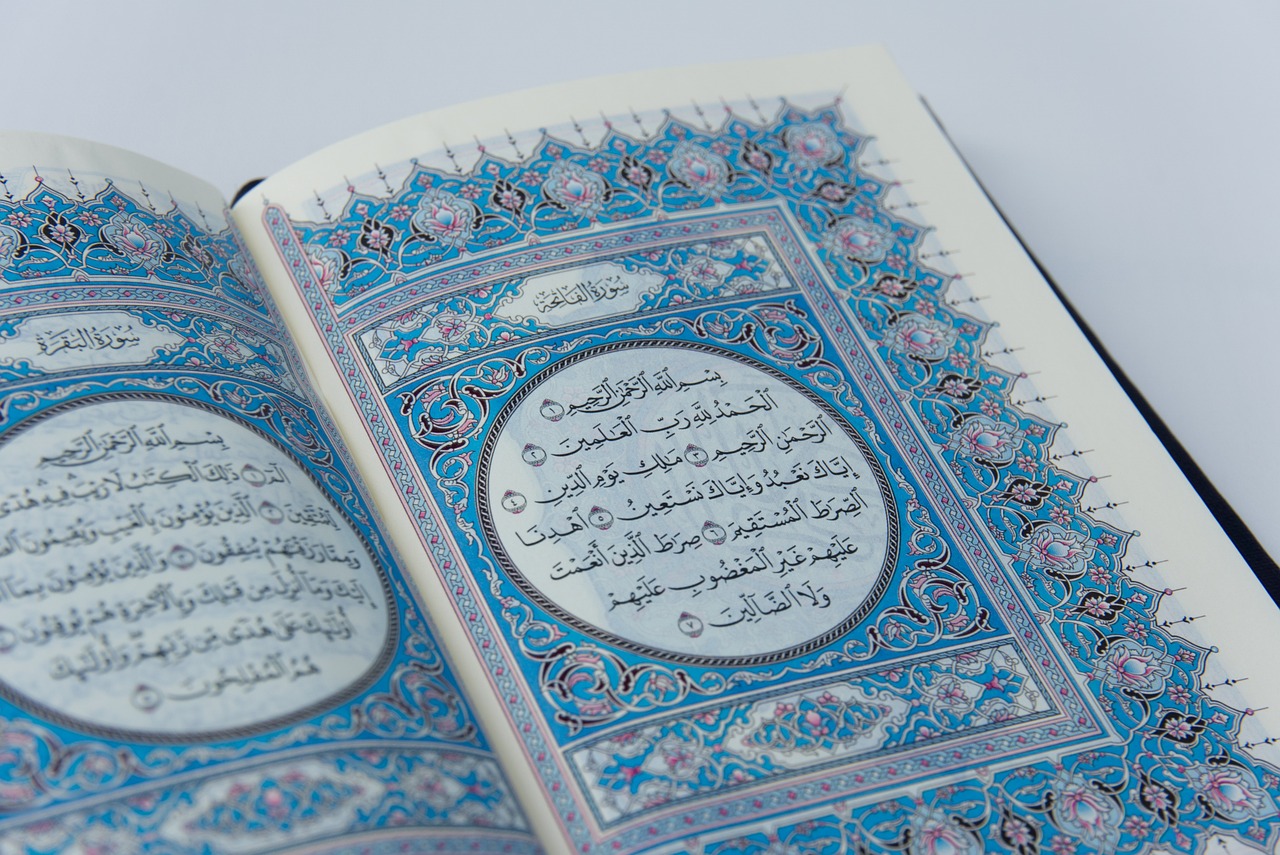 سُورَةُ الْفَاتِحَةِ
بِسْمِ ٱللَّهِ ٱلرَّحْمَٰنِ ٱلرَّحِيمِ ١
ٱلْحَمْدُ لِلَّهِ رَبِّ ٱلْعَٰلَمِينَ ٢
ٱلرَّحْمَٰنِ ٱلرَّحِيمِ ٣ مَٰلِكِ يَوْمِ ٱلدِّينِ ٤
إِيَّاكَ نَعْبُدُ وَإِيَّاكَ نَسْتَعِينُ ٥ ٱهْدِنَا
ٱلصِّرَٰطَ ٱلْمُسْتَقِيمَ ٦ صِرَٰطَ ٱلَّذِينَ أَنْعَمْتَ
عَلَيْهِمْ غَيْرِ ٱلْمَغْضُوبِ عَلَيْهِمْ
وَلَا ٱلضَّآلِّينَ ٧
سُورَةُ الْبَقَرَةِ
بِسْمِ ٱللَّهِ ٱلرَّحْمَٰنِ ٱلرَّحِيمِ
الٓمٓ ١ ذَٰلِكَ ٱلْكِتَٰبُ لَا رَيْبَ فِيهِ هُدًى
لِّلْمُتَّقِينَ ٢ ٱلَّذِينَ يُؤْمِنُونَ بِٱلْغَيْبِ وَيُقِيمُونَ
وَمِمَّا رَزَقْنَٰهُمْ يُنفِقُونَ ٣ وَٱلَّذِينَ يُؤْمِنُونَ بِمَآ
إِلَيْكَ وَمَآ أُنزِلَ مِن قَبْلِكَ وَبِٱلْأٓخِرَةِ هُمْ يُوقِنُونَ ٤
أُو۟لَٰٓئِكَ عَلَىٰ هُدًى مِّن رَّبِّهِمْ وَأُو۟لَٰٓئِكَ
هُمُ ٱلْمُفْلِحُونَ ٥